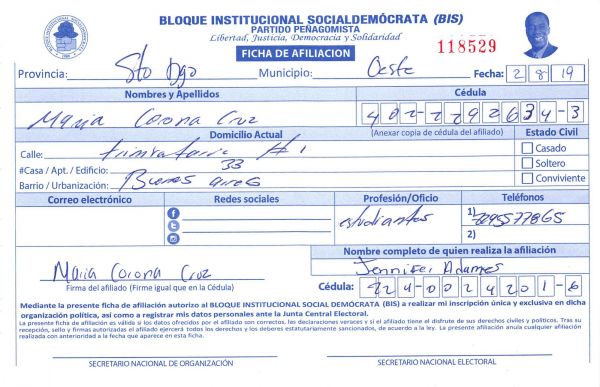 BLOQUE INSTITUCIONAL SOCIALDEMÓCRATA (BIS)
PARTIDO PEÑAGOMISTA
Libertad, Justicia, Democracia y Solidaridad
FICHA DE AFILIACION
118529
Provincia: Sto Dgo Municipio: Oeste Fecha: 2 8 19
Nombres y Apellidos Cédula
Maria Corona Cruz 402-2292634-3
Domicilio Actual (Anexar copia de cédula del afiliado) Estado Civil
Calle: # 1 Casado
#Casa / Apt. / Edificio: 33 Soltero
Barrio / Urbanización: Buenos aires Conviviente
Correo electrónico Redes sociales Profesión/Oficio Teléfonos
estudiantes 1) 8295577865
2)
Nombre completo de quien realiza la afiliación
Maria Corona Cruz Jennifer Adames
Firma del afiliado (Firme igual que en la Cédula) Cédula: 224-0024201-6
Mediante la presente ficha de afiliación autorizo al BLOQUE INSTITUCIONAL SOCIAL DEMÓCRATA (BIS) a realizar mi inscripción única y exclusiva en dicha
organización política, así como a registrar mis datos personales ante la Junta Central Electoral.
La presente ficha de afiliación es válida si los datos ofrecidos por el afiliado son correctos, las declaraciones veraces y si el afiliado tiene el disfrute de sus derechos civiles y políticos. Tras su
recepción, sello y firmas autorizadas el afiliado ejercerá todos los derechos y los deberes estatutariamente sancionados, de acuerdo a la ley. La presente afiliación anula cualquier afiliación
realizada con anterioridad a la fecha que aparece en esta ficha.
SECRETARIO NACIONAL DE ORGANIZACIÓN SECRETARIO NACIONAL ELECTORAL